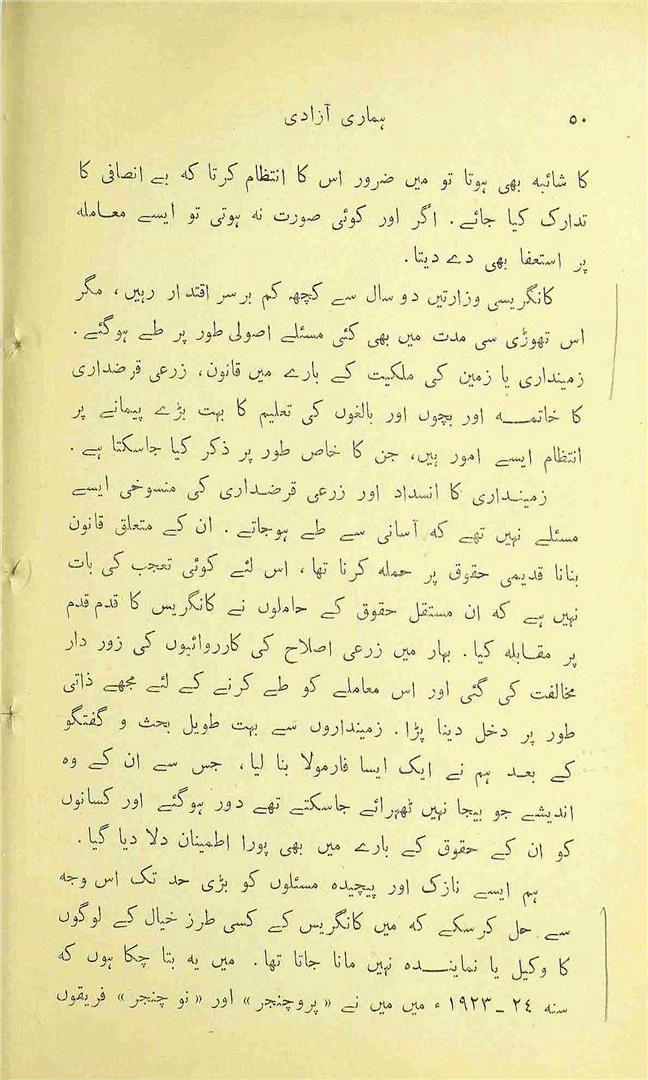 ۵۰ ہماری آزادی
کا شائبہ بھی ہوتا تو میں ضرور اس کا انتظام کرتا کہ بے انصافی کا
تدارک کیا جائے۔ اگر اور کوئی صورت نہ ہوتی تو ایسے معاملہ
پر استعفا بھی دے دیتا۔
کانگریسی وزارتیں دو سال سے کچھ کم برسر اقتدار رہیں، مگر
اس تھوڑی سی مدت میں بھی کئی مسئلے اصولی طور پر طے ہوگئے۔
زمینداری یا زمین کی ملکیت کے بارے میں قانون، زرعی قرضداری
کا خاتمہ اور بچوں اور بالغوں کی تعلیم کا بہت بڑے پیمانے پر
انتظام ایسے امور ہیں، جن کا خاص طور پر ذکر کیا جاسکتا ہے۔
زمینداری کا انسداد اور زرعی قرضداری کی منسوخی ایسے
مسئلے نہیں تھے کہ آسانی سے طے ہوجاتے۔ ان کے متعلق قانون
بنانا قدیمی حقوق پر حملہ کرنا تھا، اس لئے کوئی تعجب کی بات
نہیں ہے کہ ان مستقل حقوق کے حاملوں نے کانگریس کا قدم قدم
پر مقابلہ کیا۔ بہار میں زرعی اصلاح کی کارروائیوں کی زور دار
مخالفت کی گئی اور اس معاملے کو طے کرنے کے لئے مجھے ذاتی
طور پر دخل دینا پڑا۔ زمینداروں سے بہت طویل بحث و گفتگو
کے بعد ہم نے ایک ایسا فارمولا بنا لیا، جس سے ان کے وہ
اندیشے جو بیجا نہیں ٹھہرائے جاسکتے تھے دور ہوگئے اور کسانوں
کو ان کے حقوق کے بارے میں بھی پورا اطمینان دلا دیا گیا۔
ہم ایسے نازک اور پیچیدہ مسئلوں کو بڑی حد تک اس وجہ
سے حل کرسکے کہ میں کانگریس کے کسی طرز خیال کے لوگوں
کا وکیل یا نمایندہ نہیں مانا جاتا تھا۔ میں یہ بتا چکا ہوں کہ
سنہ ۲٤ ـ ۱۹۲۳ ء میں میں نے «پروچنجر» اور «نو چنجر» فریقوں